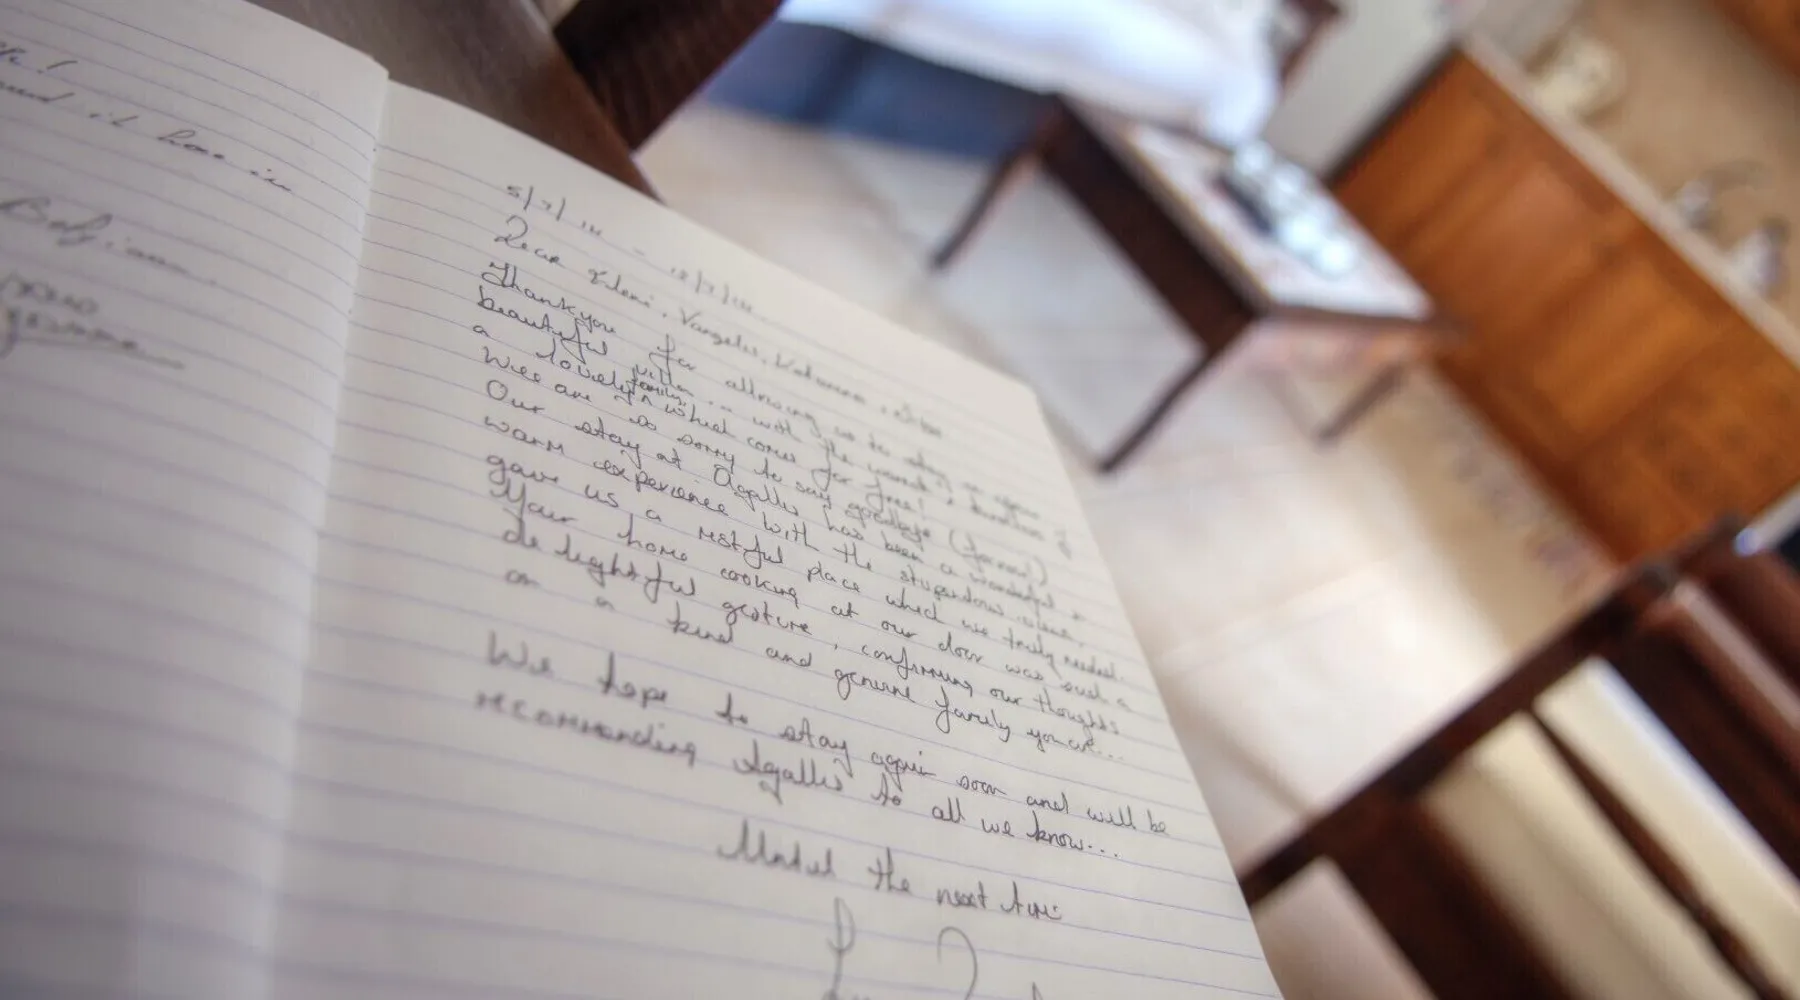 it here in
Belgium
5/7/14 - 12/7/14
Dear Eleni, Vangelis, Katerina,
Thankyou for allowing us to stay in your
beautiful villa .. with the warmth, kindness of
a lovely family, which comes for free!
Wee are so sorry to say goodbye
Our stay at Agalli's has been a wonderful,
warm experience with the stupendous views,
gave us a restful place which we truly needed.
Your home cooking at our door was such a
delightful gesture, confirming our thoughts
on a kind and genuine family you are...
We hope to stay again soon and will be
recommending Agallis to all we know...
Until the next time